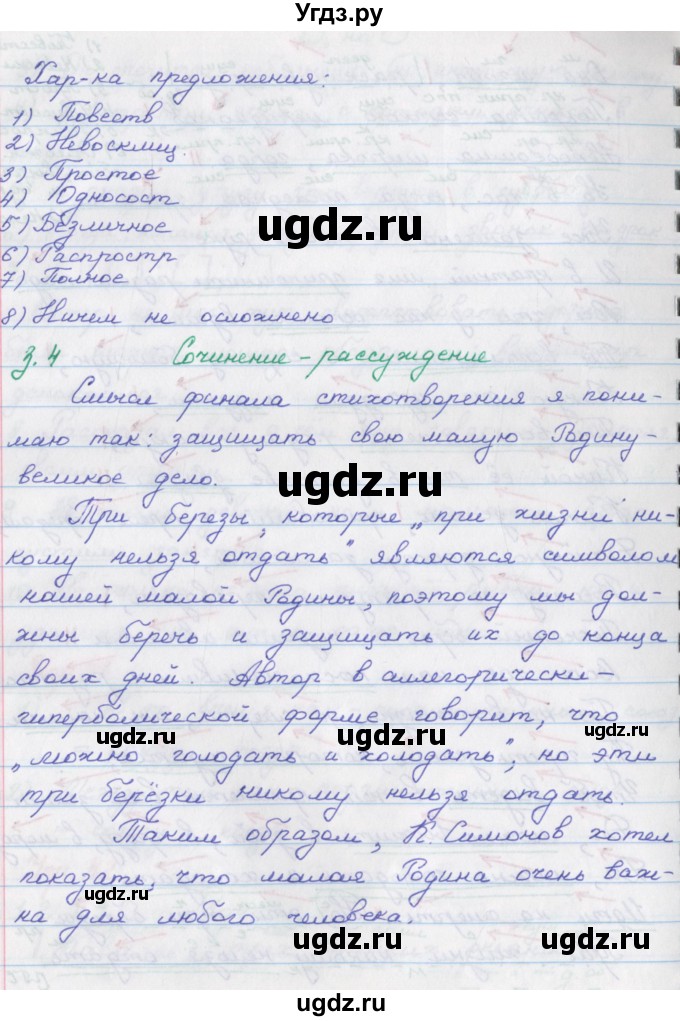 Угдз.ру
Хар-ка предложения:
1) Повеств
2) Невосклиц.
3) Простое
4) Односост
ugdz.ru
5) Безличное
6) Распростр
7) Полное
8) Ничем не осложнено
З.4 Сочинение-рассуждение
Смысл финала стихотворения я пони-
маю так: защищать свою малую Родину-
великое дело.
ugdz.ru
Три березы, которые „при жизни ни-
кому нельзя отдать" являются символом
нашей малой Родины, поэтому мы дол-
жны беречь и защищать их до конца
своих дней. Автор в аллегорически-
гиперболической форме говорит, что
ugdz.ru ugdz.ru ugdz.ru
„можно голодать и холодать", но эти
три берёзки никому нельзя отдать.
Таким образом, К. Симонов хотел
показать, что малая Родина очень важ-
ugdz.ru ugdz.ru
на для любого человека.
ugdz.ru
ugdz.ru